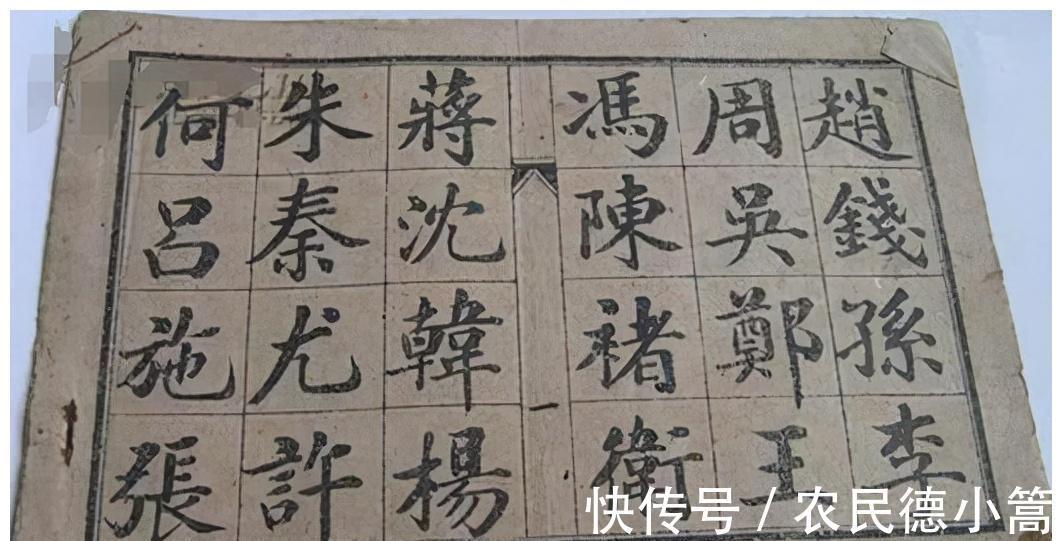 趙錢孫李
周吳鄭王
馮陳褚衛
蔣沈韓楊
朱秦尤許
何呂施張
一
快传号 / 农民德小篙